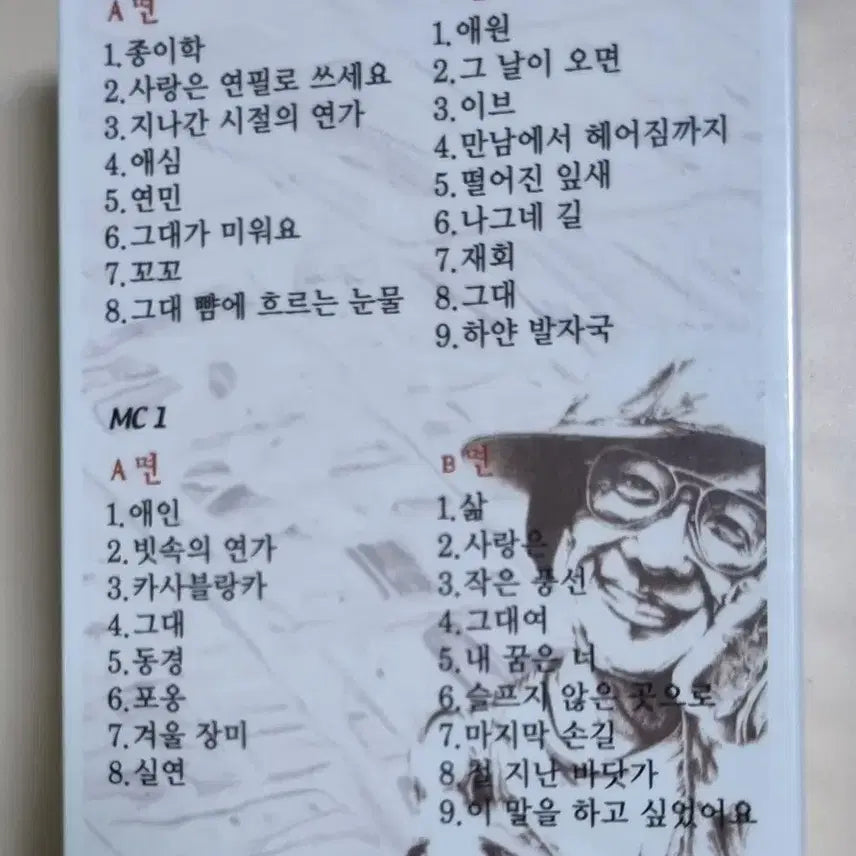 A 면
1.종이학
2.사랑은 연필로 쓰세요
3.지나간 시절의 연가
4.애심
5.연민
6.그대가 미워요
7.꼬꼬
8.그대 뺨에 흐르는 눈물
1.애원
2.그 날이 오면
3.이브
4.만남에서 헤어짐까지
5.떨어진 잎새
6.나그네 길
7.재회
8.그대
9.하얀 발자국
MC 1
A 면
1.애인
2.빗속의 연가
3.카사블랑카
4.그대
5.동경
6.포옹
7.겨울 장미
8.실연
B 면
1.삶
2.사랑은
3.작은 풍선
4.그대여
5.내 꿈은 너
6.슬프지 않은 곳으로
7.마지막 손길
8.철 지난 바닷가
9.이 말을 하고 싶었어요